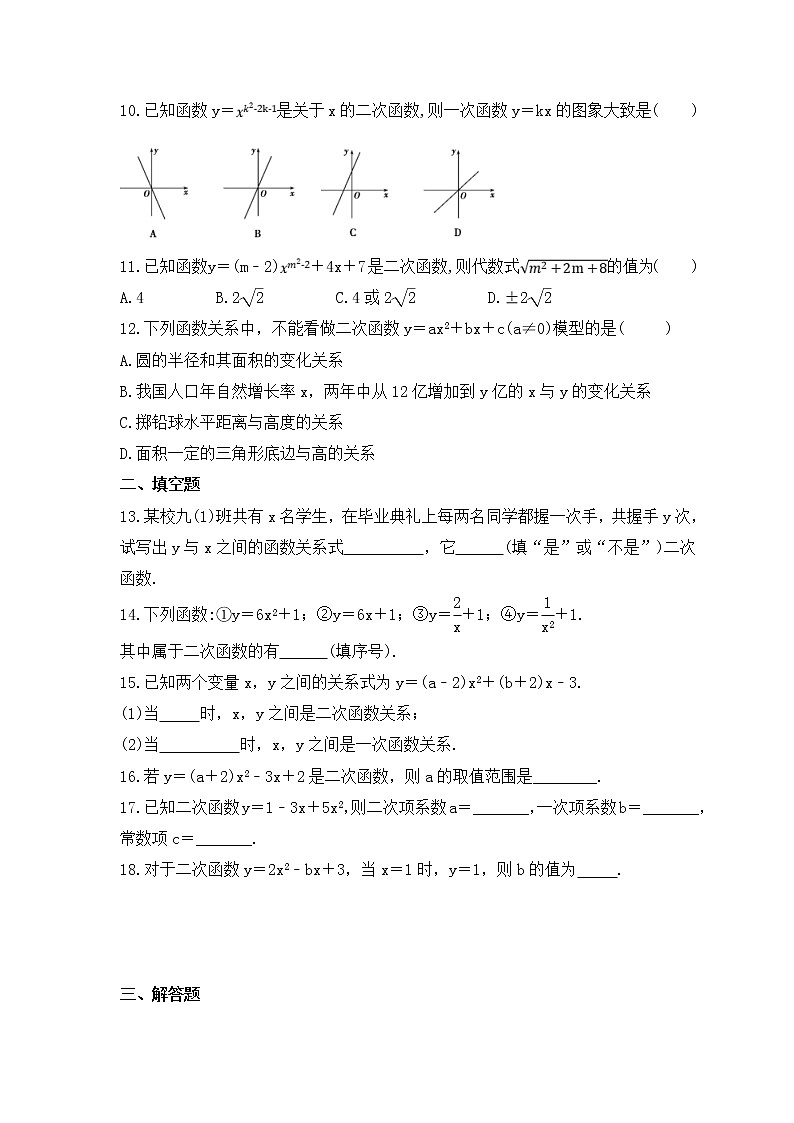 10.已知函数y＝x^{k²-2k-1}是关于x的二次函数,则一次函数y＝kx的图象大致是(　　)
y y y y
O x O x O x O x
A B C D
11.已知函数y＝(m﹣2)x^{m²-2}＋4x＋7是二次函数,则代数式√(m²＋2m＋8)的值为(　　)
A.4 B.2√2 C.4或2√2 D.±2√2
12.下列函数关系中，不能看做二次函数y＝ax²＋bx＋c(a≠0)模型的是(　　)
A.圆的半径和其面积的变化关系
B.我国人口年自然增长率x，两年中从12亿增加到y亿的x与y的变化关系
C.掷铅球水平距离与高度的关系
D.面积一定的三角形底边与高的关系
二、填空题
13.某校九(1)班共有x名学生，在毕业典礼上每两名同学都握一次手，共握手y次，
试写出y与x之间的函数关系式__________，它______(填“是”或“不是”)二次
函数.
14.下列函数:①y＝6x²＋1；②y＝6x＋1；③y＝2/x＋1；④y＝1/x²＋1.
其中属于二次函数的有______(填序号).
15.已知两个变量x，y之间的关系式为y＝(a﹣2)x²＋(b＋2)x﹣3.
(1)当_____时，x，y之间是二次函数关系；
(2)当__________时，x，y之间是一次函数关系.
16.若y＝(a＋2)x²﹣3x＋2是二次函数，则a的取值范围是________.
17.已知二次函数y＝1﹣3x＋5x²,则二次项系数a＝_______,一次项系数b＝_______,
常数项c＝_______.
18.对于二次函数y＝2x²﹣bx＋3，当x＝1时，y＝1，则b的值为_____.
三、解答题